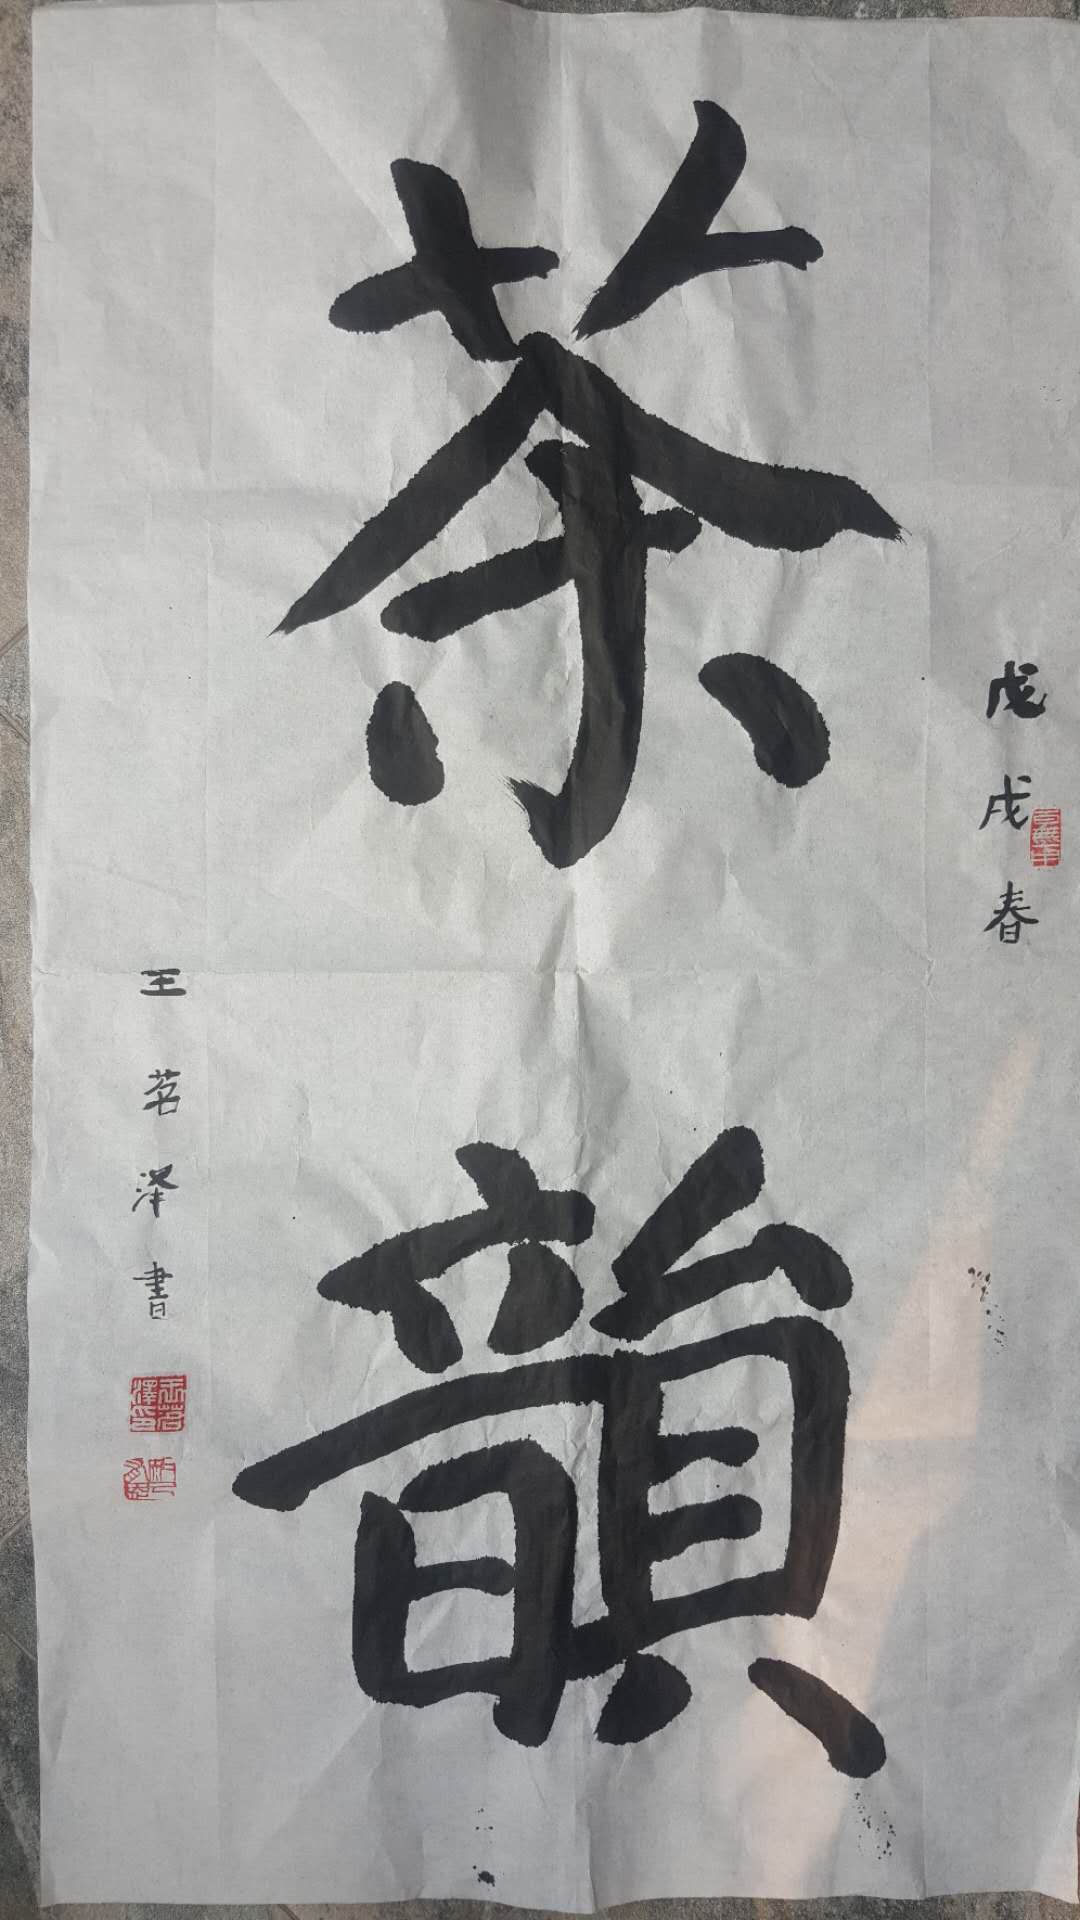 戊戌春
茶韻
王茗泽書